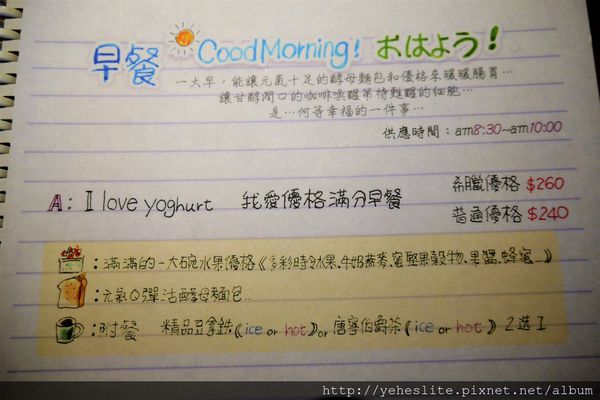 早餐 Good Morning! おはよう!
一大早，能讓元氣十足的酵母麵包和優格來暖暖腸胃…
讓甘醇潤口的咖啡喚醒等待甦醒的細胞…
是…何等幸福的一件事…
供應時間：am8:30~am10:00
A: I love yoghurt 我愛優格滿分早餐
希臘優格 $260
普通優格 $240
：滿滿的一大碗水果優格《多彩時令水果、牛奶燕麥、蜜堅果穀物、果醬、蜂蜜…》
：元氣Q彈活酵母麵包…
：附餐 精品豆拿鉄《ice or hot》or 唐寧伯爵茶《ice or hot》 2選1
http://yeheslite.pixnet.net/album